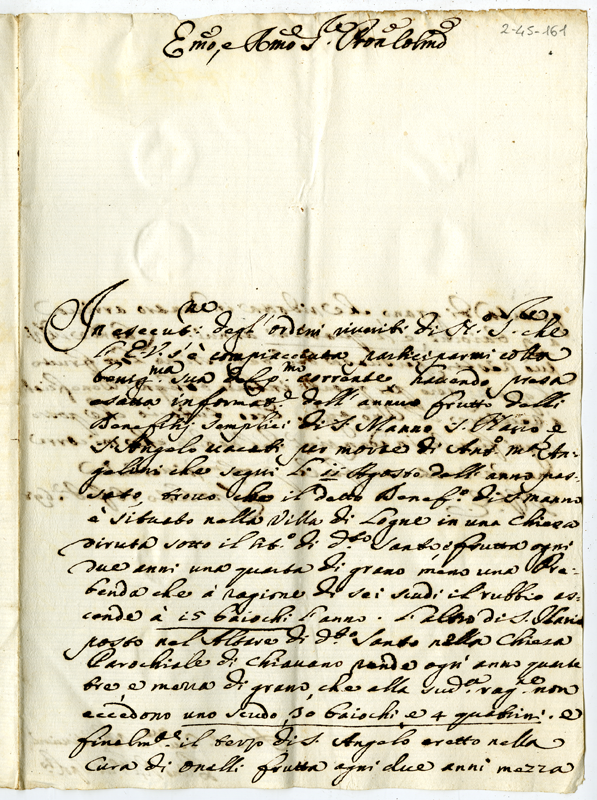 2-45-161
Emo, e Rmo Sre Pron Colmo
In esecutne: degl'ordini riveriti di N. Sre che
l'E.V. s'è compiacciuta participarmi colla
benigma sua del pmo corrente havendo presa
esatta informate dell'annuo frutto delli
Benefitij semplici di S. Manno S. Ilario e
S. Angelo vacati per morte di Anto. Ma An-
gelini che seguì li 11 Agosto dell'anno pas-
sato, trovo che il detto Benefo. di S. Manno
è situato nella Villa di Logne in una Chiesa
diruta sotto il tito. di dto Santo e frutta ogni
due anni una quarta di grano meno una Pre-
benda che à ragione di sei scudi il rubbio as-
cende à 15 baiochi l'anno. L'altro di S. Ilario
posto nel Altare di dto Santo nella Chiesa
Parochiale di Chiavano rende ogn'anno quarte
tre e mezza di grano, che alla suda. rage. non
eccedono uno scudo, 30 baiochi e 4 quatrini. e
finalmte il terzo di S. Angelo eretto nella
Cura di Onelli frutta ogni due anni mezza